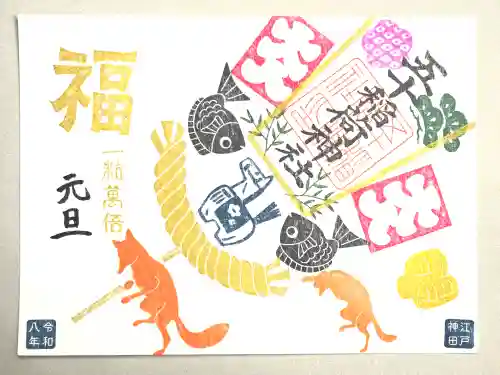 福
一粒萬倍
元旦
五十
稲荷神社
令和
八年
江戸
神田